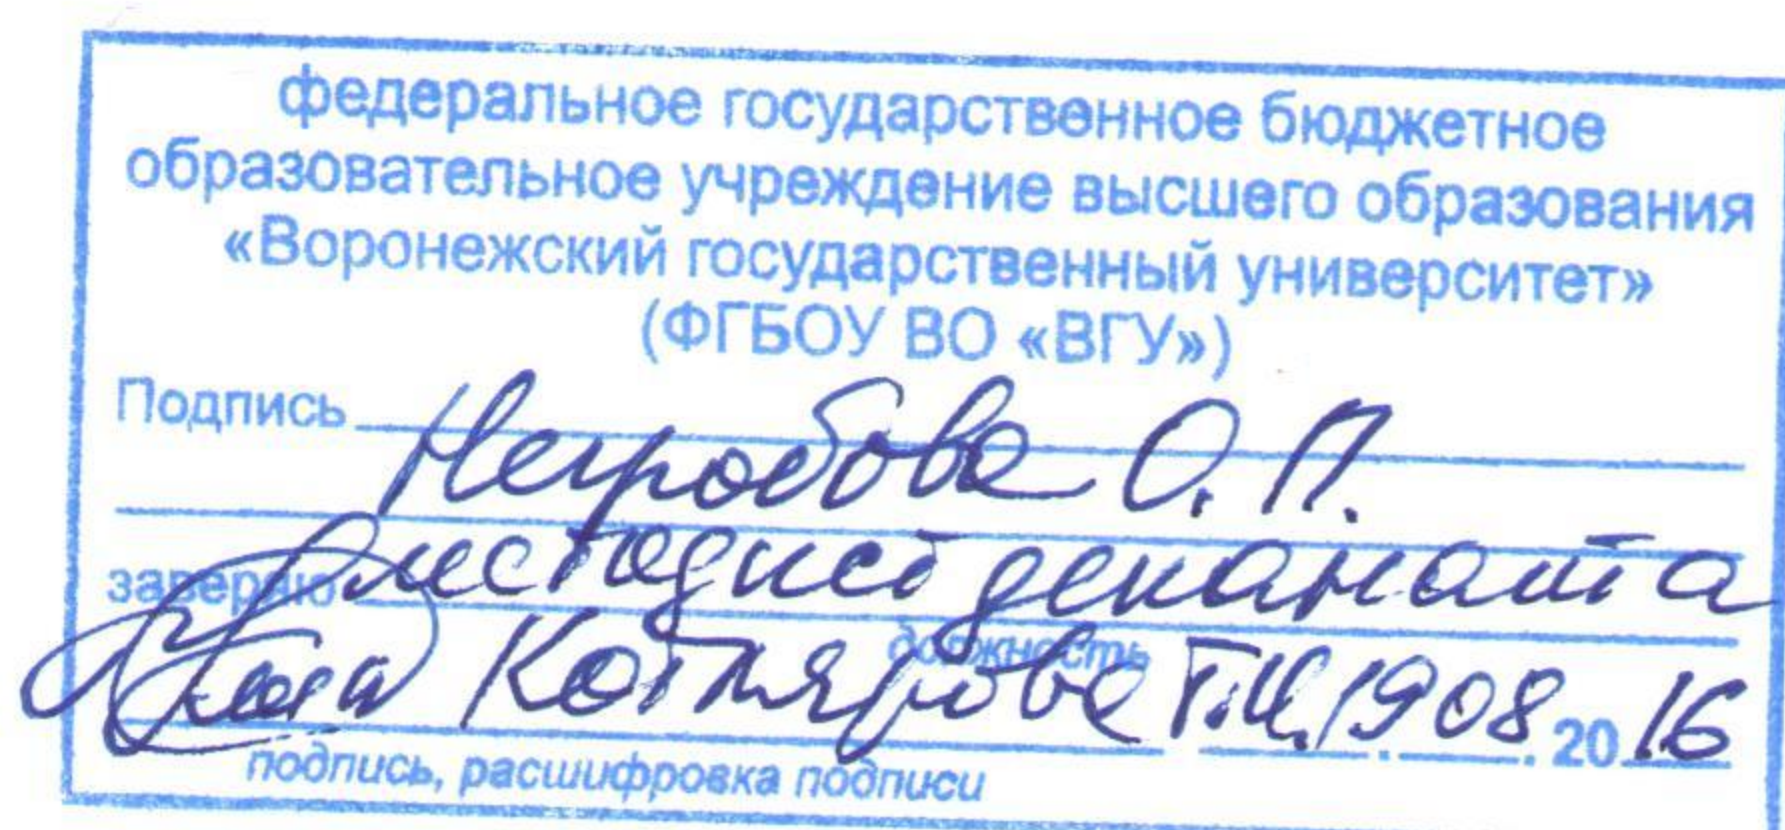 федеральное государственное бюджетное
образовательное учреждение высшего образования
«Воронежский государственный университет»
(ФГБОУ ВО «ВГУ»)
Подпись Негробова О. П.
заверяю методист деканата
должность
Котлярова Т.И. 19 08 . 20 16
подпись, расшифровка подписи